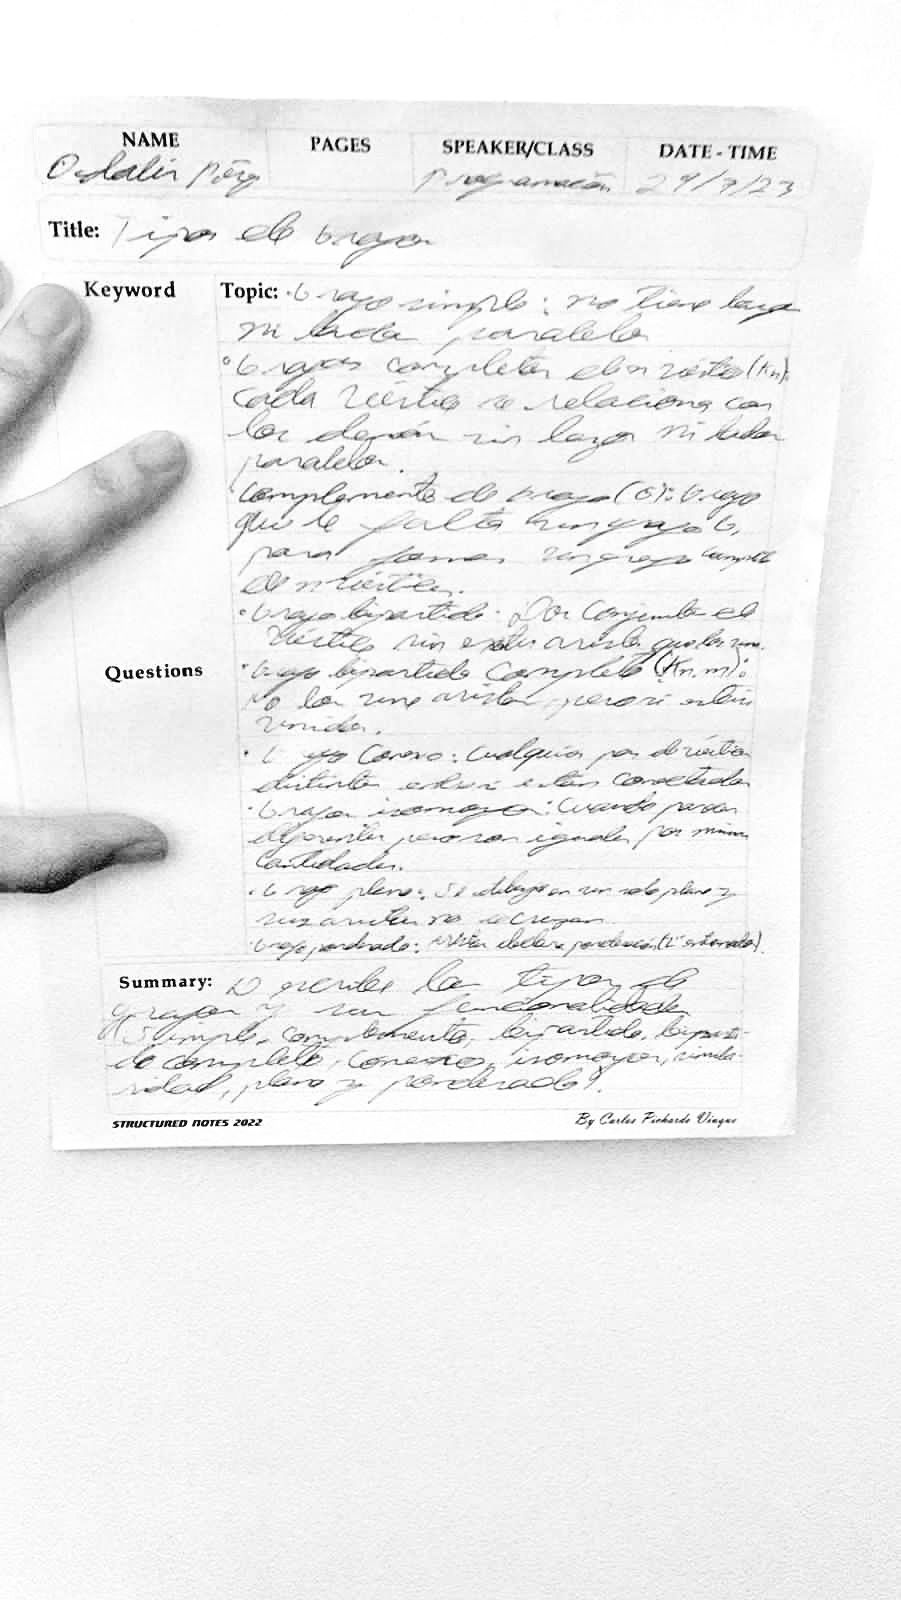 NAME PAGES SPEAKER/CLASS DATE - TIME
Programación
Title: Tipos de Grafos
Keyword
Topic: · Grafo simple: no tiene lazos
ni lados paralelos
· Grafos completos de n vértice (Kn):
Cada vértice se relaciona con
los demás sin lazos ni lados
paralelos.
Complemento de Grafo (G): Grafo
que le falta un grafo G,
para formar un grafo completo
de n vértices.
· Grafo bipartido: Dos Conjunto de
Vértice sin arista que los une.
Questions
· Grafo bipartido Completo (Kn,m):
no los une aristas pero si están
unidos.
· Grafo Conexo: Cualquier par de vértices
distintos están Conectados
· Grafos isomorfos: Cuando parecen
diferentes pero son iguales por mismas
Cantidades.
· Grafo plano: Se dibuja en un solo plano y
sus aristas no se cruzan
· Grafo ponderado:
Summary: Describe los tipos de
grafos y sus funcionalidades
(Simple, complemento, bipartido, biparti-
do completo, Conexos, isomorfos, simila-
ridad, plano y ponderado).
STRUCTURED NOTES 2022
By Carlos Pichardo Viuque